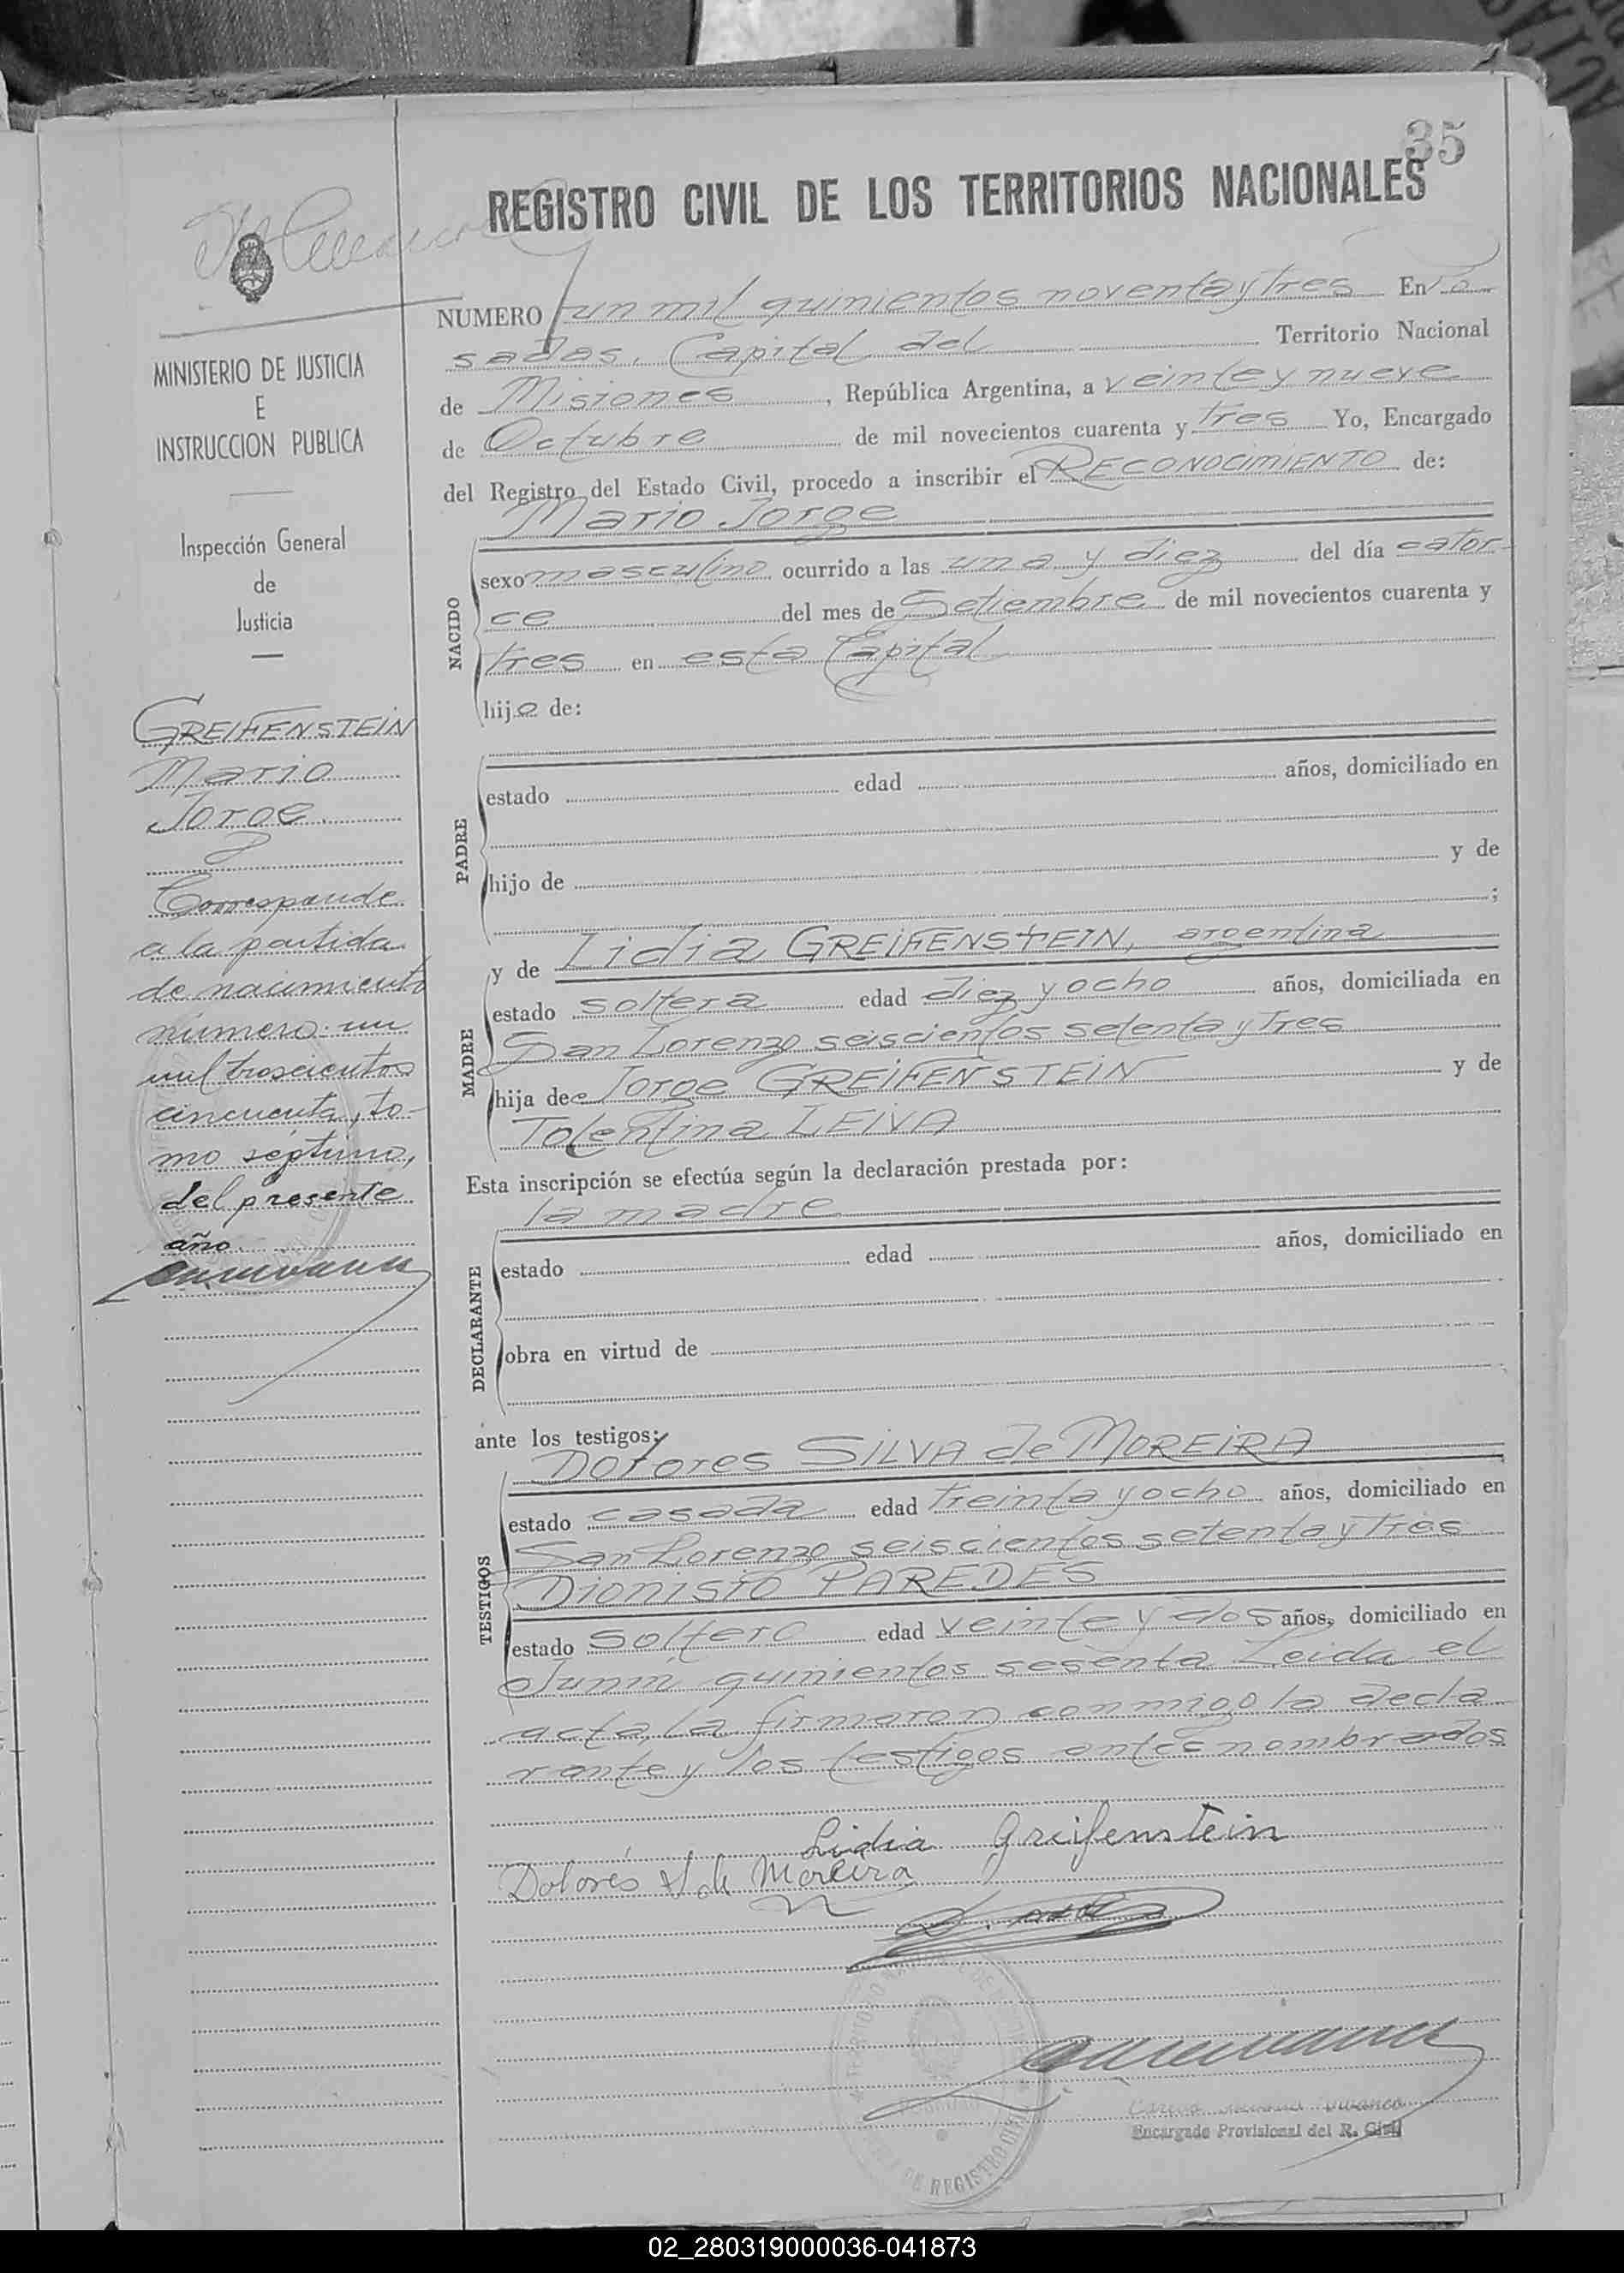 35
REGISTRO CIVIL DE LOS TERRITORIOS NACIONALES
MINISTERIO DE JUSTICIA
E
INSTRUCCION PUBLICA
Inspección General
de
Justicia
GREIFENSTEIN
Mario
Jorge.
Corresponde
a la partida
de nacimiento
número un
mil troscientos
cincuenta, to-
mo séptimo,
del presente
año.
NUMERO un mil quinientos noventa y tres En Po
sadas, Capital del Territorio Nacional
de Misiones , República Argentina, a veinte y nueve
de Octubre de mil novecientos cuarenta y tres Yo, Encargado
del Registro del Estado Civil, procedo a inscribir el RECONOCIMIENTO de:
Mario Jorge
NACIDO
sexo masculino ocurrido a las una y diez del día cator
ce del mes de Setiembre de mil novecientos cuarenta y
tres en esta Capital
hijo de:
PADRE
estado edad años, domiciliado en
hijo de y de
;
MADRE
y de Lidia GREIFENSTEIN, argentina
estado soltera edad diez y ocho años, domiciliada en
San Lorenzo seiscientos setenta y tres
hija de Jorge GREIFENSTEIN y de
Tolentina LEIVA
Esta inscripción se efectúa según la declaración prestada por:
la madre
DECLARANTE
estado edad años, domiciliado en
obra en virtud de
ante los testigos:
Dolores SILVA de MOREIRA
TESTIGOS
estado casada edad treinta y ocho años, domiciliado en
San Lorenzo seiscientos setenta y tres
Dionisio PAREDES
estado soltero edad veinte y dos años, domiciliado en
Junin quinientos sesenta Leida el
acta, la firmaron conmigo la decla
rante y los testigos antes nombrados
Lidia Greifenstein
Dolores S de Moreira
Encargado Provisional del R. Civil
02_280319000036-041873